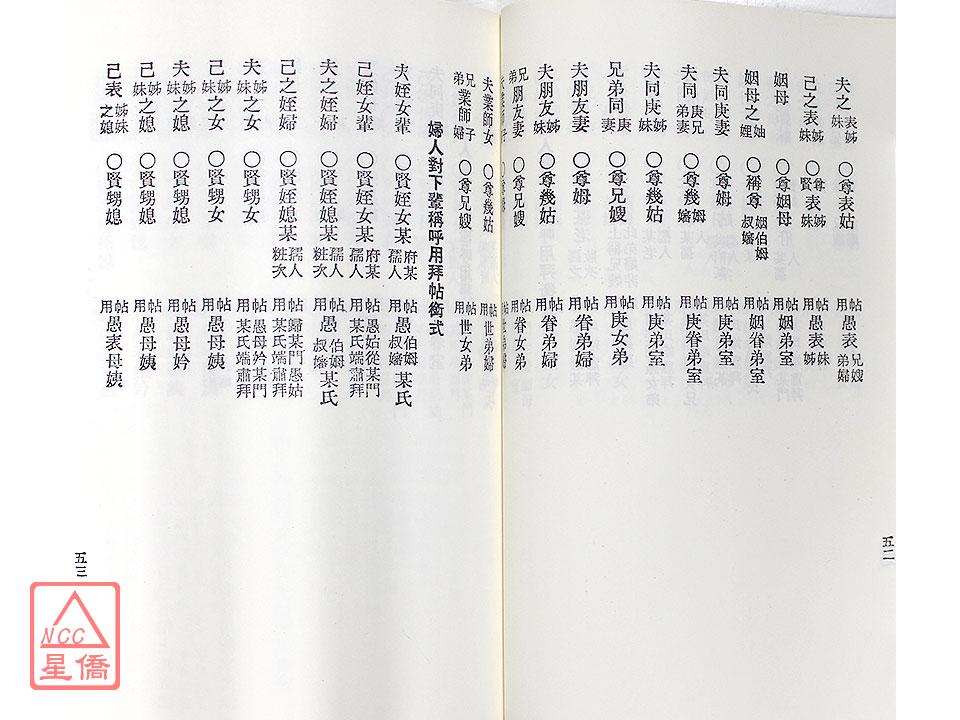 夫之表姊妹 ○尊表姑 帖用愚表兄嫂弟婦
己之表姊妹 ○尊表姊賢表妹 帖用愚表妹姊
姻母 ○尊姻母 帖用姻弟室
姻母之妯娌 ○稱尊姻伯姆叔嬸 帖用姻眷弟室
夫同庚妻 ○尊姆 帖用庚弟室
夫同庚兄弟妻 ○尊幾姆嬸 帖用庚眷弟室
夫同庚姊妹 ○尊幾姑 帖用庚弟室
兄弟同庚妻 ○尊兄嫂 帖用庚女弟
夫朋友妻 ○尊姆 帖用眷弟婦
夫朋友姊妹 ○尊幾姑 帖用眷弟婦
兄弟朋友妻 ○尊兄嫂 帖用眷女弟
夫業師子
夫業師女 ○尊幾姑 帖用世弟婦
兄弟業師子婦 ○尊兄嫂 帖用世女弟
婦人對下輩稱呼用拜帖銜式
夫姪女輩 ○賢姪女某府某孺人 帖用愚伯姆叔嬸某氏
己姪女輩 ○賢姪女某府某孺人 帖用愚姑從某門某氏端肅拜
夫之姪婦 ○賢姪媳某孺人粧次 帖用愚伯姆叔嬸某氏
己之姪婦 ○賢姪媳某孺人粧次 帖用歸某門愚姑某氏端肅拜
夫姊妹之女 ○賢甥女 帖用愚母妗某門某氏端肅拜
己姊妹之女 ○賢甥女 帖用愚母姨
夫姊妹之媳 ○賢甥媳 帖用愚母妗
己姊妹之媳 ○賢甥媳 帖用愚母姨
己表姊妹之媳 ○賢甥媳 帖用愚表母姨
五二
五三
NCC
星僑